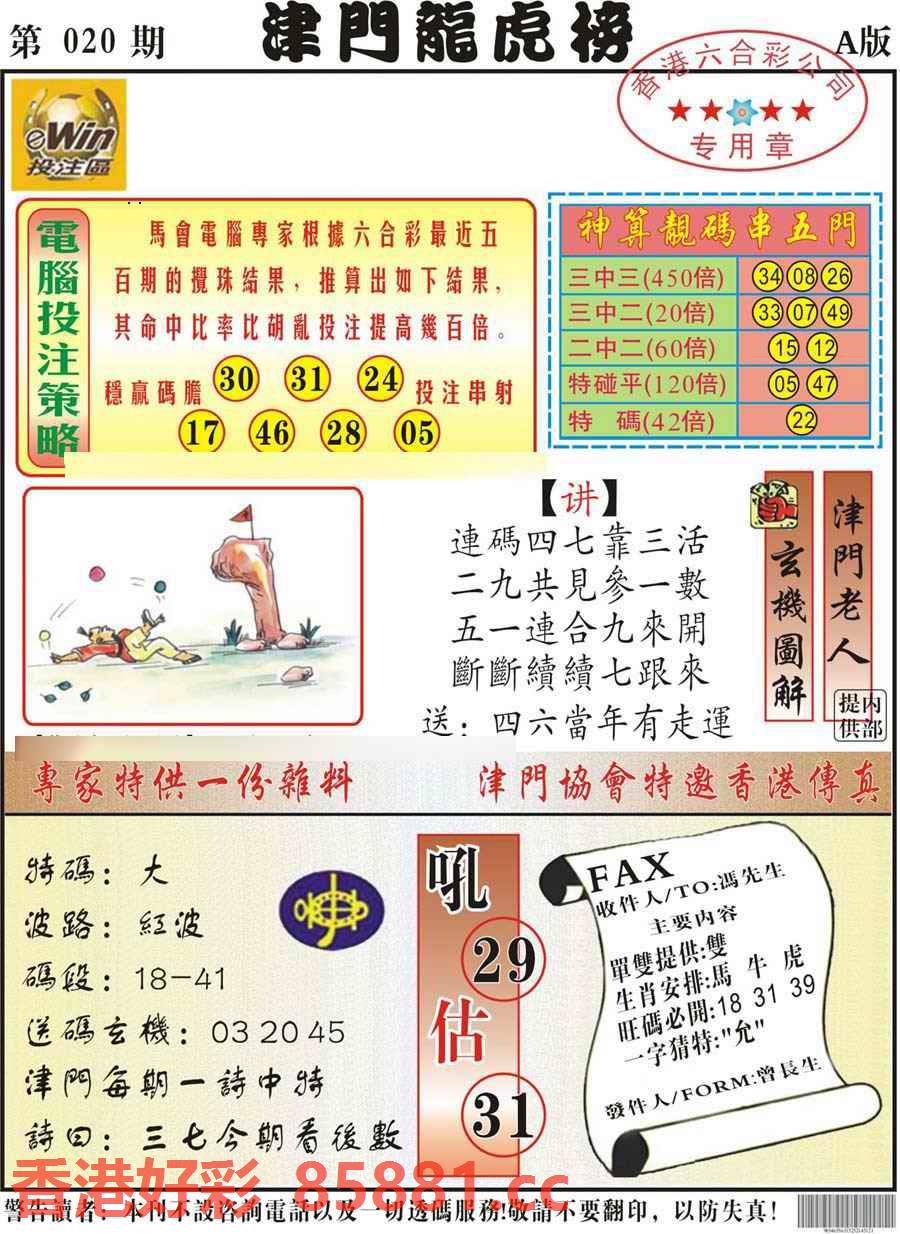 第 020 期
津門龍虎榜
A版
香港六合彩公司
专用章
eWin
投注區
電腦投注策略
馬會電腦專家根據六合彩最近五
百期的攪珠結果，推算出如下結果，
其命中比率比胡亂投注提高幾百倍。
穩贏碼膽 30 31 24 投注串射
17 46 28 05
神算靚碼串五門
三中三(450倍) 34 08 26
三中二(20倍) 33 07 49
二中二(60倍) 15 12
特碰平(120倍) 05 47
特 碼(42倍) 22
【讲】
連碼四七靠三活
二九共見參一數
五一連合九來開
斷斷續續七跟來
送：四六當年有走運
玄機圖解
津門老人
內部提供
專家特供一份雜料
津門協會特邀香港傳真
特碼：大
波路：紅波
碼段：18-41
送碼玄機：03 20 45
津門每期一詩中特
詩曰：三七今期看後數
吼
29
估
31
FAX
收件人/TO:馮先生
主要内容
單雙提供:雙
生肖安排:馬 牛 虎
旺碼必開:18 31 39
一字猜特:"允"
發件人/FORM:曾長生
香港好彩 85881.cc
警告讀者：本刊不設咨詢電話以及一切透碼服務!敬請不要翻印，以防失真!